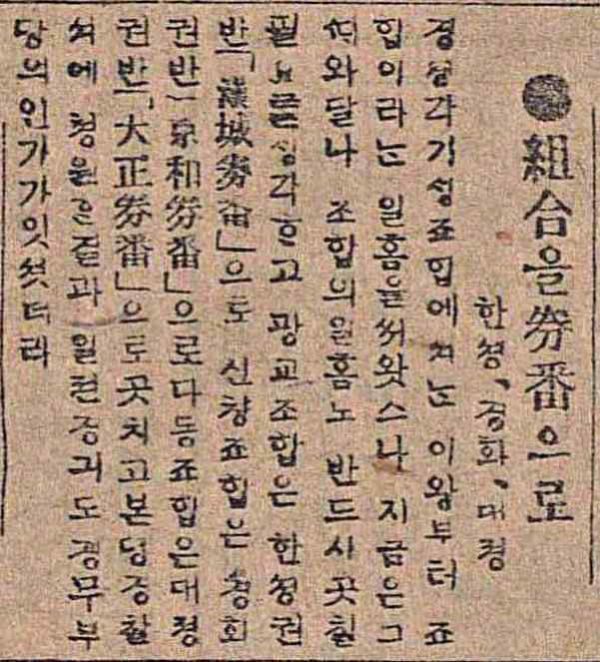 ●組合을券番으로
한셩、경화、대졍
경셩각기셩죠합에셔는 이왕부터 죠
합이라는 일홈을써왓스나 지금은그
때와달나 조합의일홈도 반드시곳칠
필요를생각ᄒᆞ고 광교조합은 한셩권
반「漢城券番」으로 신창죠합은 경화
권반「京和券番」으로다동죠합은대졍
권반「大正券番」으로곳치고본뎡경찰
셔에 청원ᄒᆞᆫ결과 일젼경긔도경무부
당의인가가잇셧더라